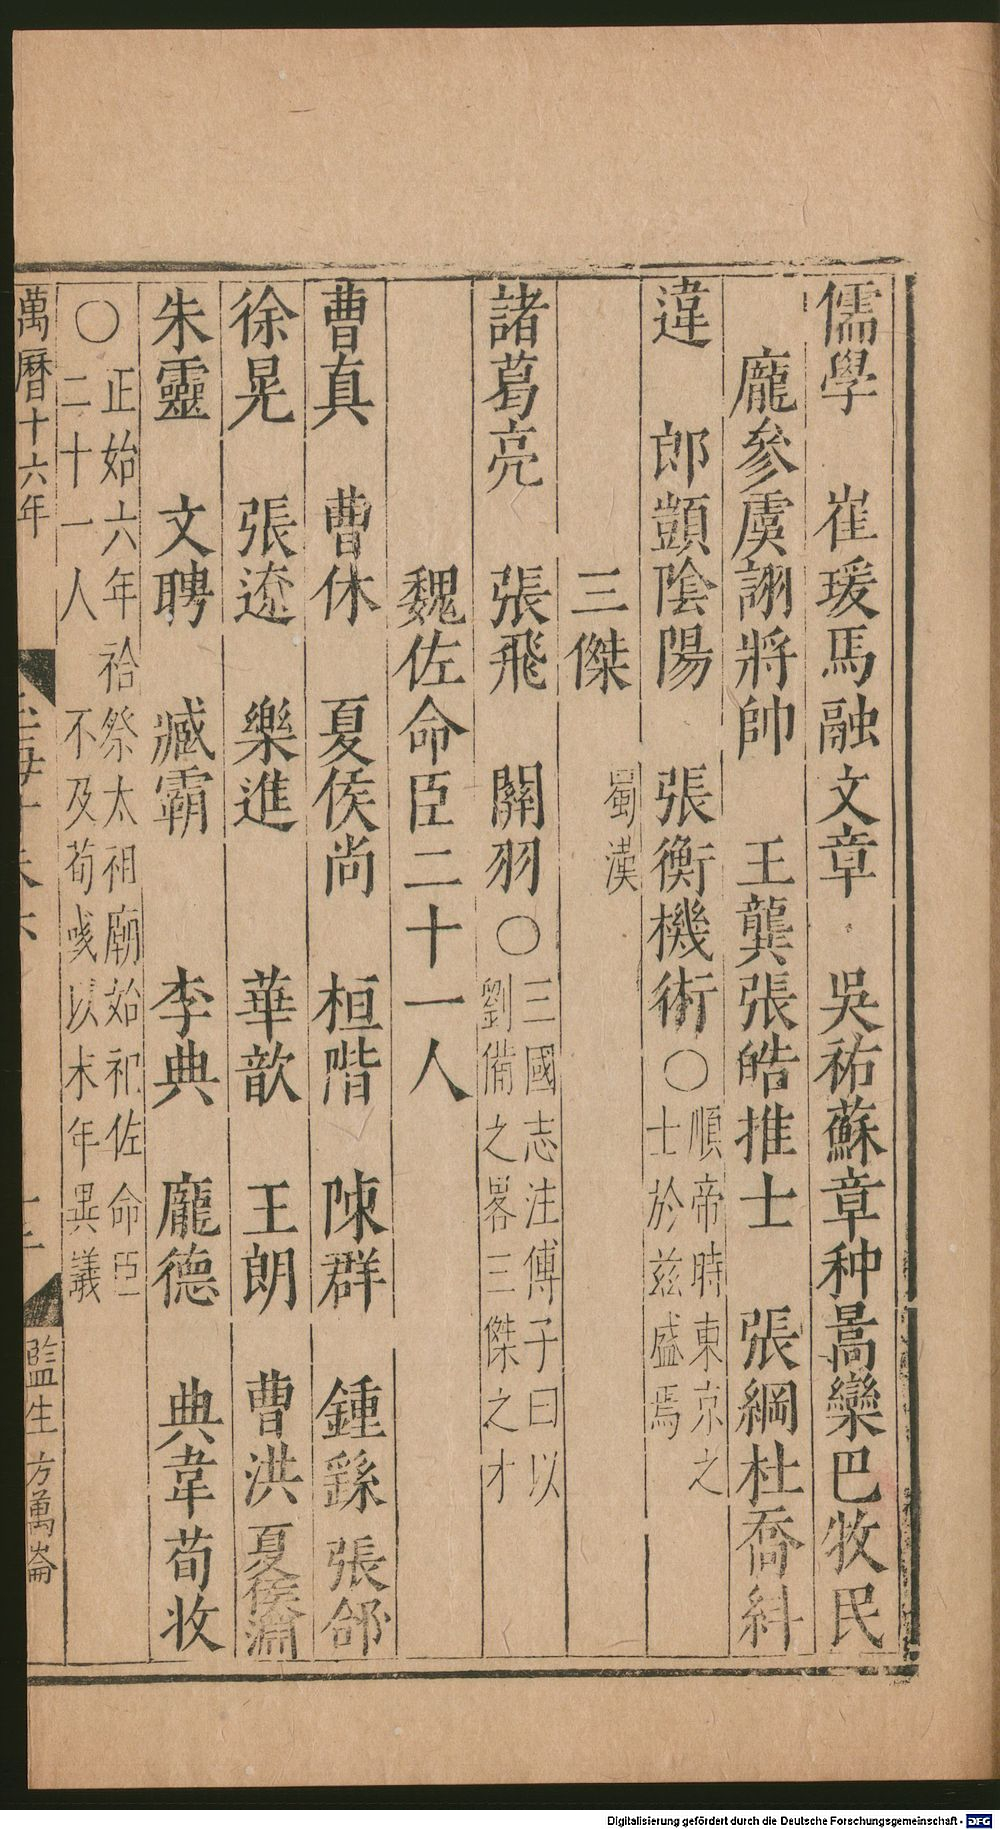 儒學 崔瑗馬融文章 吳祐蘇章种暠欒巴牧民
龐參虞詡將帥 王龔張皓推士 張綱杜喬糾
違 郎顗陰陽 張衡機術○順帝時東京之士於兹盛焉
三傑 蜀漢
諸葛亮 張飛 關羽○三國志注傅子曰以劉備之畧三傑之才
魏佐命臣二十一人
曹真 曹休 夏侯尚 桓階 陳群 鍾繇 張郃
徐晃 張遼 樂進 華歆 王朗 曹洪 夏侯淵
朱靈 文聘 臧霸 李典 龐德 典韋 荀攸
○正始六年祫祭太祖廟始祀佐命臣二十一人 不及荀彧以末年異議
萬曆十六年
監生方萬崙
Digitalisierung gefördert durch die Deutsche Forschungsgemeinschaft - DFG